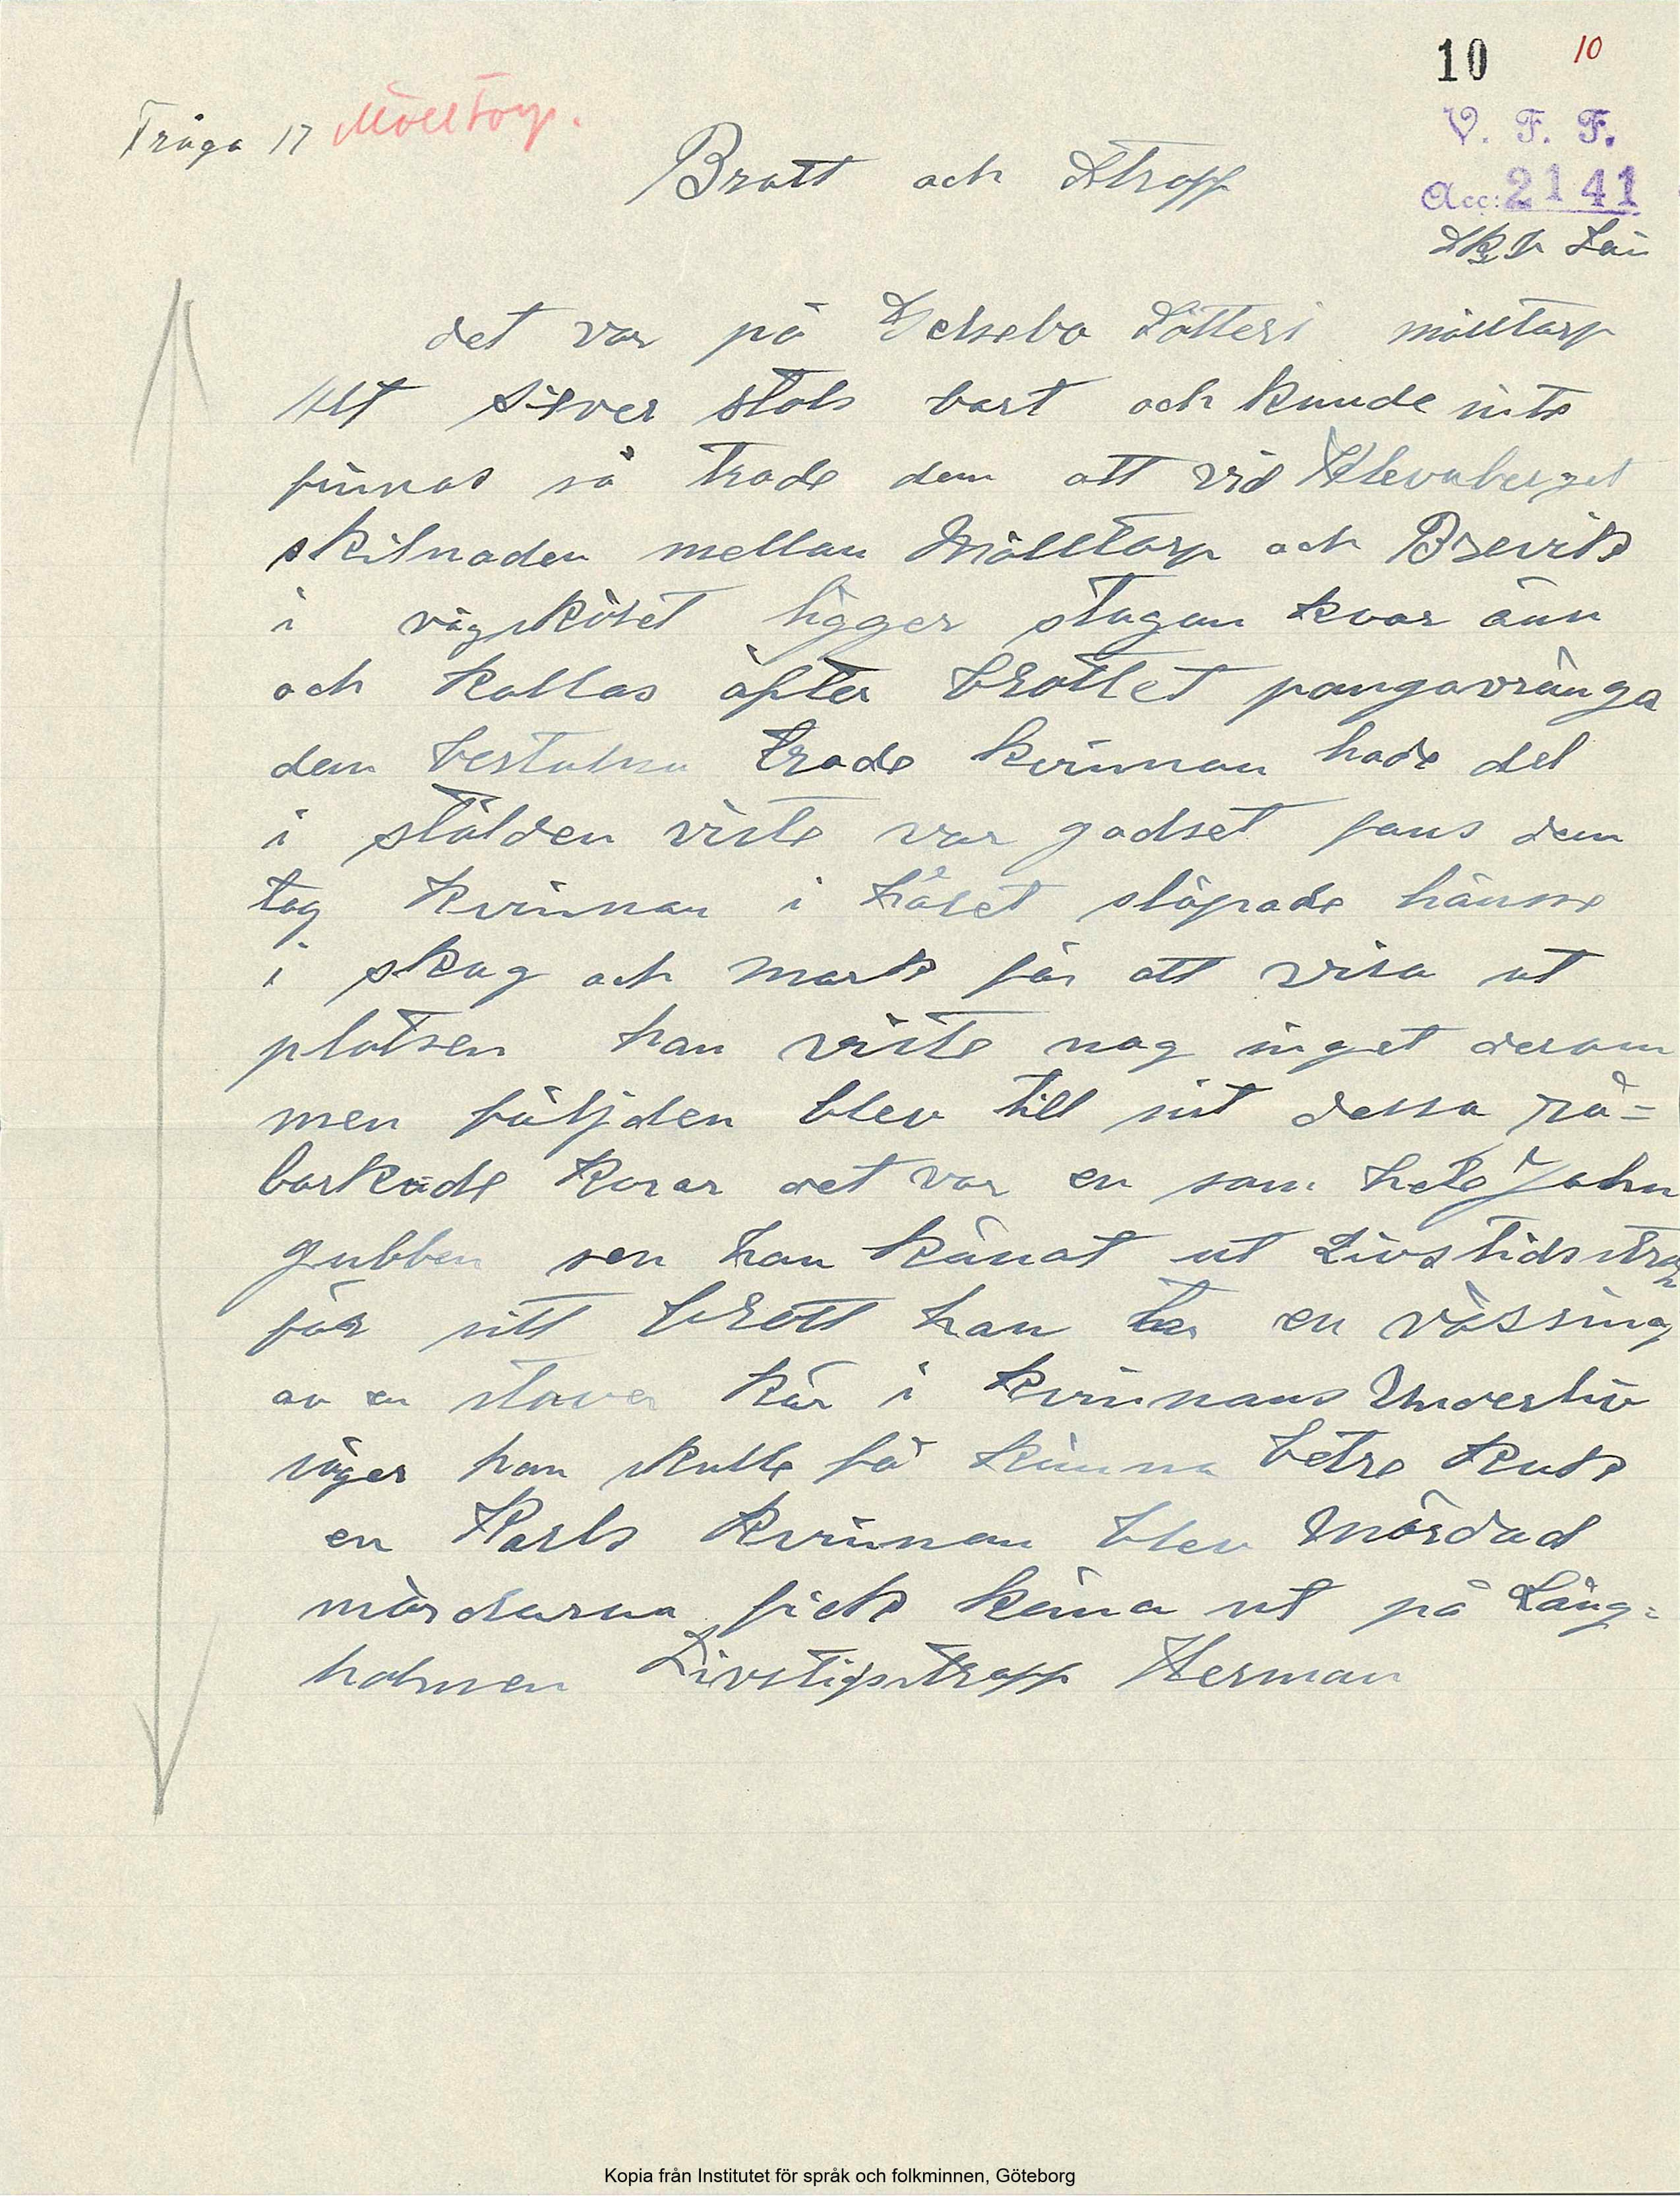 10 10
Fråga 17 Mölltorp.
V. F. F.
Brott och Straff
Acc: 2141
Skb Län
det var på Sätteri mölltorp
Allt silver stals bort och kunde inte
finnas så trode dem att vid Klevaberget
skilnaden mellan Mölltorp och Brevik
i vägsköset ligger stugan kvar änn
och kallas äfter brottet pangavränga
dem bestulna trode kvinnan hade del
i stölden viste var godset fans dem
tog kvinnan i håret släpade hänne
i skog och mark för att visa ut
platsen hon viste nog inget derom
men följden blev till sist dessa rå=
barkade karar det var en som hete John
gubben sen han känat ut Livstidstraff
för sitt brott han en vässing
av en staver kär i kvinnans Underliv
säger hon skulle få känna bätre kuk
en Karls kvinnan blev Mördad
mördarna fick käna ut på Lång=
holmen Livstigsstraff Herman
Kopia från Institutet för språk och folkminnen, Göteborg